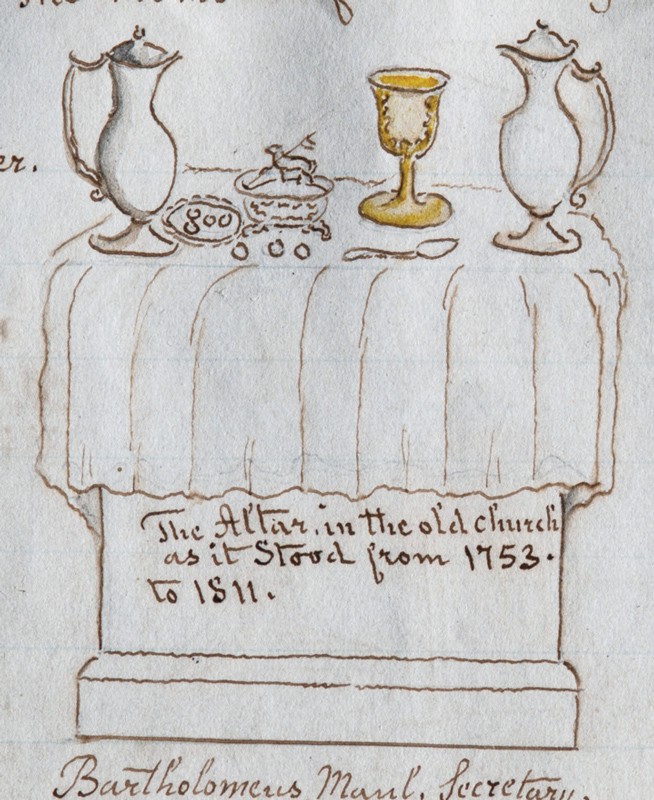 er.
The Altar. in the old church
as it Stood from 1753.
to 1811.
Bartholomeus Maul. Secretary.